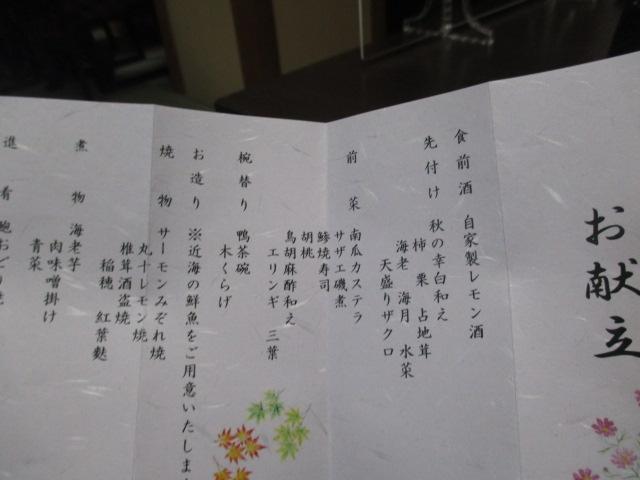 お献立
食前酒 自家製レモン酒
先付け 秋の幸白和え
柿 栗 占地茸
海老 海月 水菜
天盛りザクロ
前菜 南瓜カステラ
サザエ磯煮
鯵焼寿司
胡桃
鳥胡麻酢和え
エリンギ 三葉
椀替り 鴨茶碗
木くらげ
お造り ※近海の鮮魚をご用意いたしま
焼物 サーモンみぞれ焼
丸十レモン焼
椎茸酒盗焼
稲穂 紅葉麩
煮物 海老芋
肉味噌掛け
青菜
進肴 鮑おどり焼